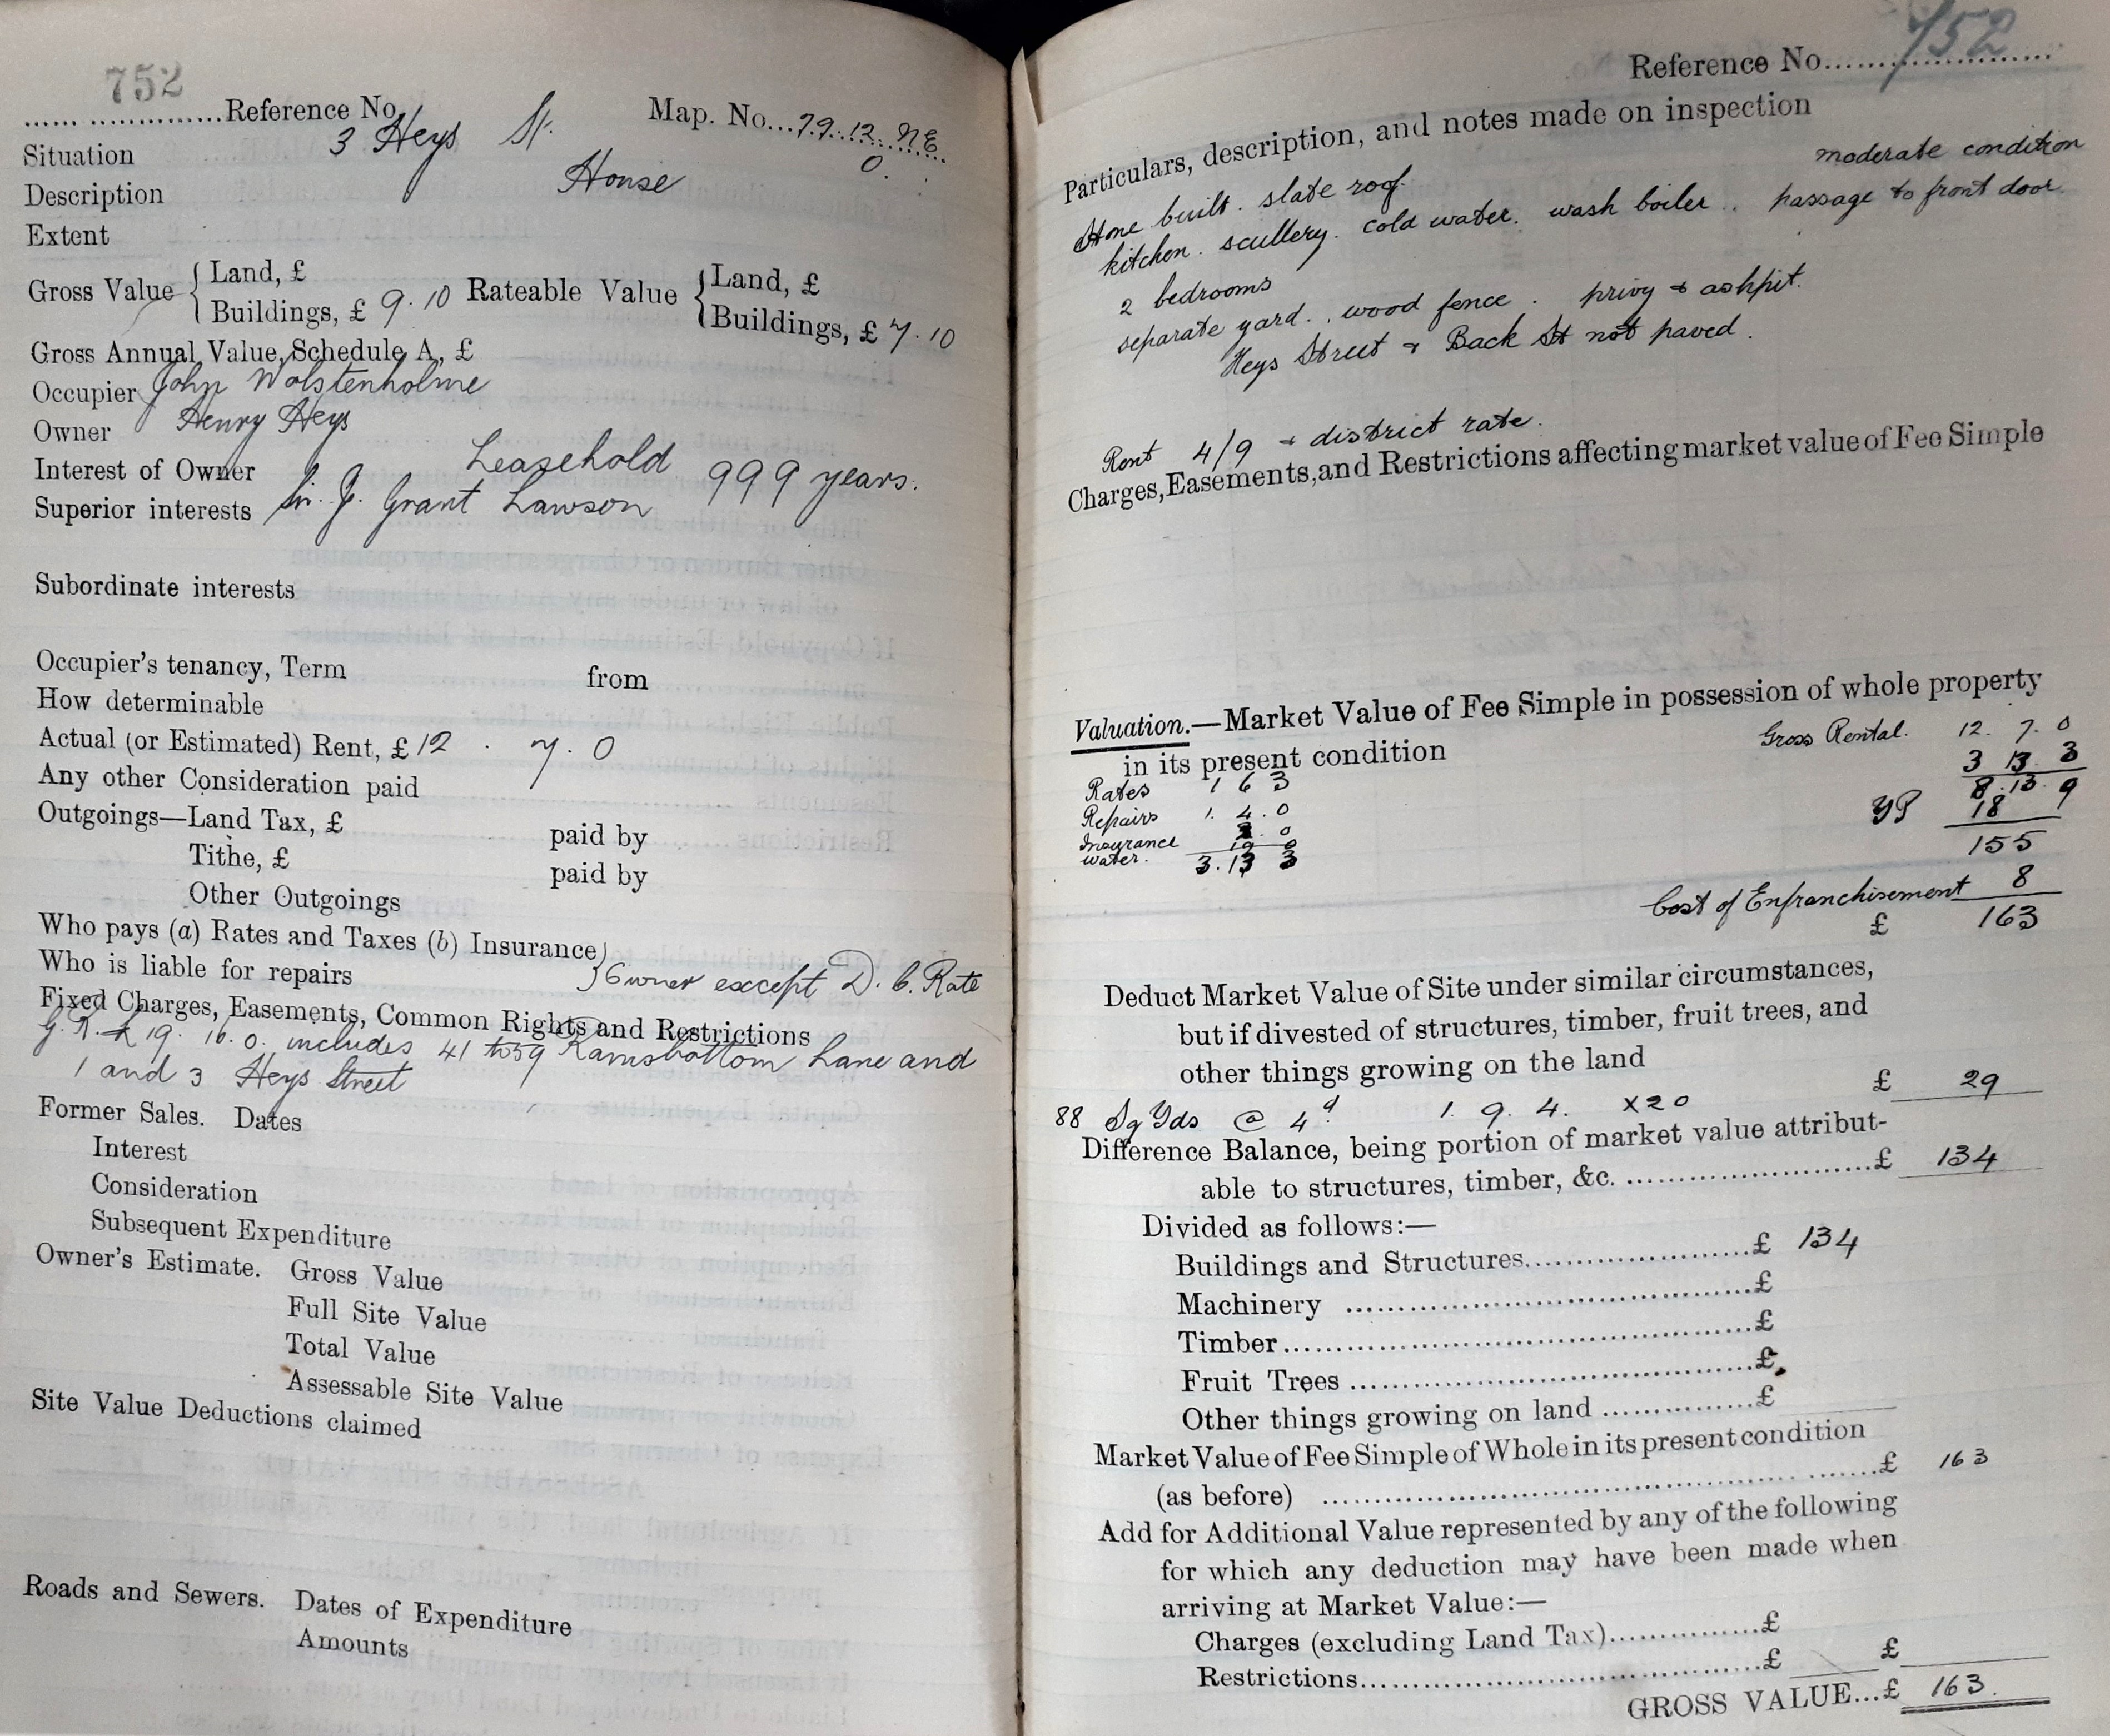 752
...... .............Reference No.
Map. No...79.12.NE
0.
Situation 3 Heys St.
Description House
Extent
Gross Value { Land, £
Buildings, £ 9.10
Rateable Value { Land, £
Buildings, £ 7.10
Gross Annual Value, Schedule A, £
Occupier John Wolstenholme
Owner Henry Heys
Interest of Owner Leasehold 999 years.
Superior interests Sir. J. Grant Lawson
Subordinate interests
Occupier's tenancy, Term from
How determinable
Actual (or Estimated) Rent, £ 12 . 7. 0
Any other Consideration paid
Outgoings—Land Tax, £ paid by
Tithe, £ paid by
Other Outgoings
Who pays (a) Rates and Taxes (b) Insurance }
Who is liable for repairs } Owner except D. C. Rate
Fixed Charges, Easements, Common Rights and Restrictions
G. R. £ 19. 16. 0. includes 41 to 59 Ramsbottom Lane and
1 and 3 Heys Street
Former Sales. Dates
Interest
Consideration
Subsequent Expenditure
Owner's Estimate. Gross Value
Full Site Value
Total Value
Assessable Site Value
Site Value Deductions claimed
Roads and Sewers. Dates of Expenditure
Amounts
Reference No. 752
Particulars, description, and notes made on inspection
moderate condition
Stone built. slate roof.
kitchen. scullery. cold water. wash boiler.. passage to front door.
2 bedrooms
separate yard.. wood fence . privy & ashpit.
Heys Street & Back St not paved.
Rent 4/9 + district rate.
Charges, Easements, and Restrictions affecting market value of Fee Simple
Valuation.—Market Value of Fee Simple in possession of whole property
in its present condition
Gross Rental. 12. 7. 0
3 13 3
8.13.9
YP 18
155
Cost of Enfranchisement 8
£ 163
Rates 1 6 3
Repairs 1. 4. 0
Insurance 2. 0
water.
3. 13 3
Deduct Market Value of Site under similar circumstances,
but if divested of structures, timber, fruit trees, and
other things growing on the land £ 29
88 Sq Yds @ 4d 1. 9. 4. X20
Difference Balance, being portion of market value attribut-
able to structures, timber, &c. ..........................£ 134
Divided as follows:—
Buildings and Structures........................£ 134
Machinery ............................................£
Timber..................................................£
Fruit Trees ...........................................£
Other things growing on land ................£
Market Value of Fee Simple of Whole in its present condition
(as before) ..................................................£ 163
Add for Additional Value represented by any of the following
for which any deduction may have been made when
arriving at Market Value:—
Charges (excluding Land Tax)................£
Restrictions............................................£ £
GROSS VALUE...£ 163.